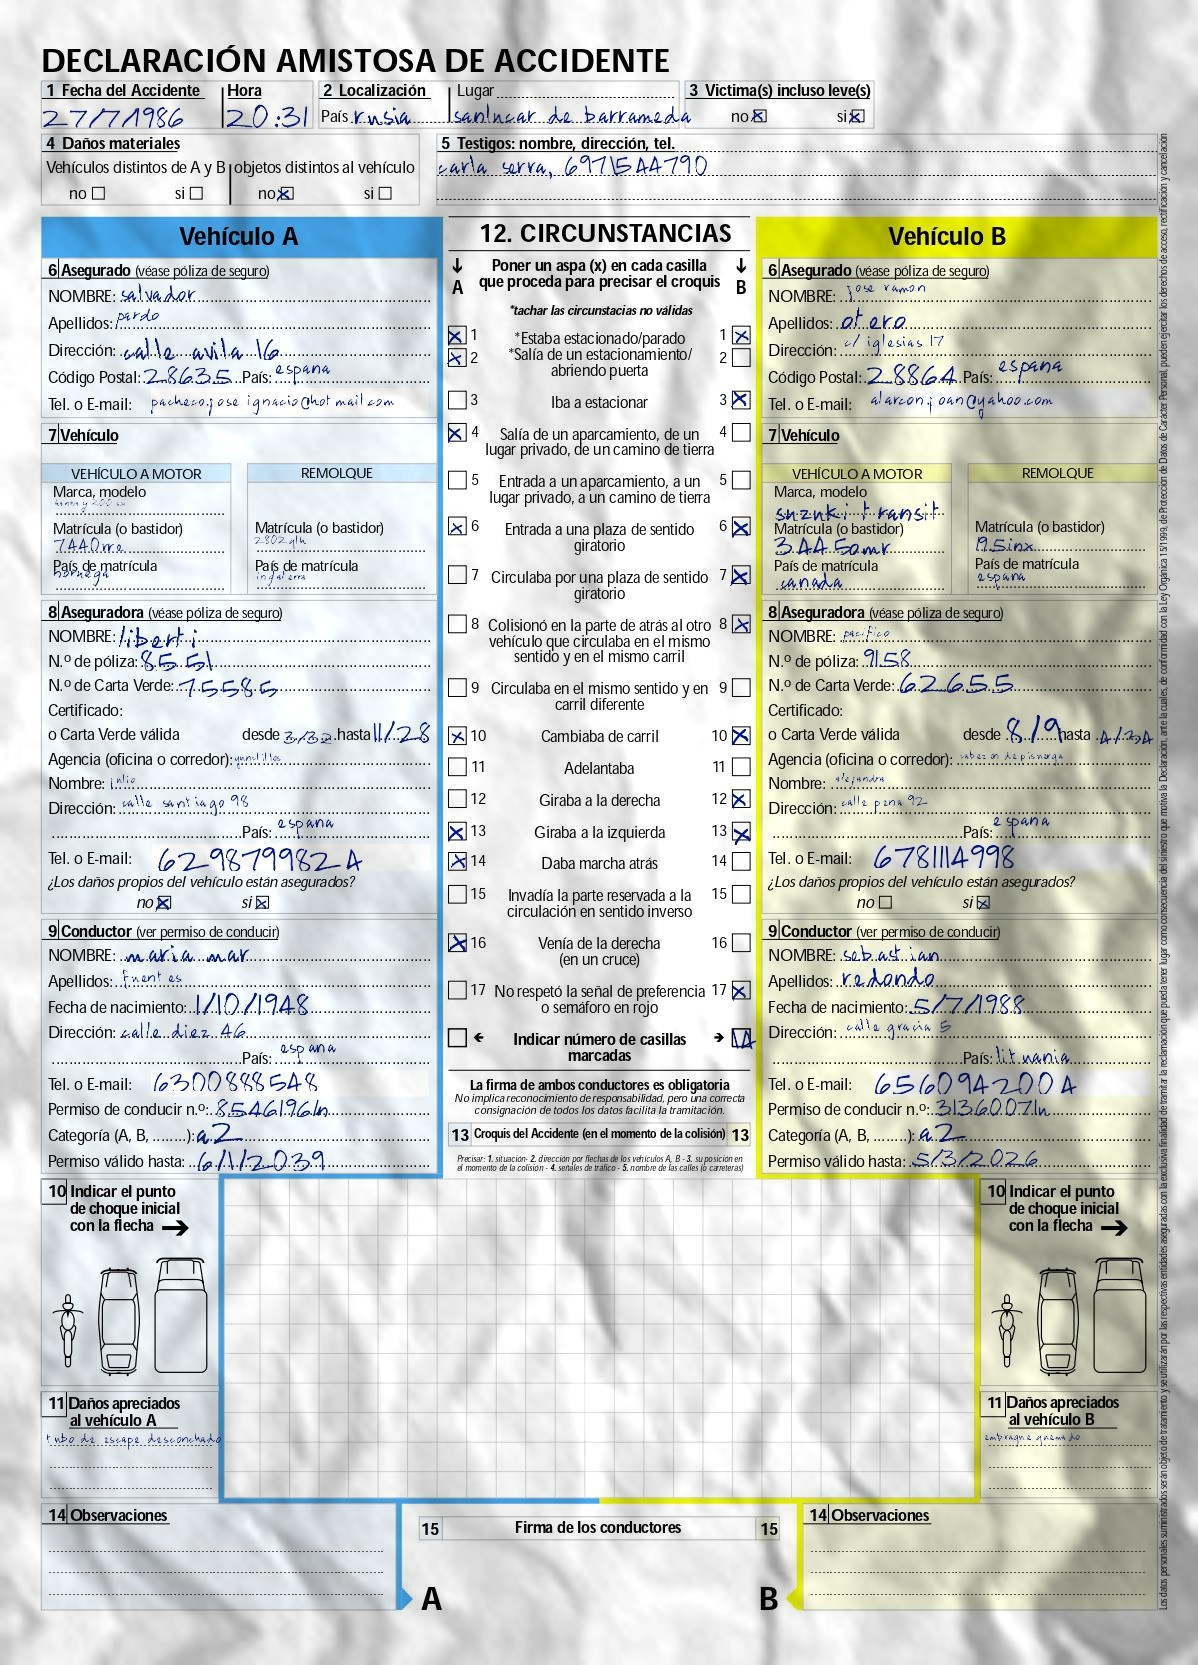 DECLARACIÓN AMISTOSA DE ACCIDENTE
1 Fecha del Accidente Hora 2 Localización Lugar 3 Victima(s) incluso leve(s)
27/7/1986 20:31 País rusia sanlucar de barrameda no si
4 Daños materiales
Vehículos distintos de A y B objetos distintos al vehículo
no si no si
5 Testigos: nombre, dirección, tel.
carla serra, 6971544790
Vehículo A
6 Asegurado (véase póliza de seguro)
NOMBRE: salvador
Apellidos: pardo
Dirección: calle avila 16
Código Postal: 28635 País: espana
Tel. o E-mail: pacheco.jose ignacio@hotmail.com
7 Vehículo
VEHÍCULO A MOTOR REMOLQUE
Marca, modelo
Matrícula (o bastidor) Matrícula (o bastidor)
7440rre 2802glh
País de matrícula País de matrícula
noruega inglaterra
8 Aseguradora (véase póliza de seguro)
NOMBRE: liberti
N.º de póliza: 8551
N.º de Carta Verde: 75585
Certificado:
o Carta Verde válida desde 3/32 hasta 11/28
Agencia (oficina o corredor):
Nombre: julio
Dirección: calle santiago 98
País: espana
Tel. o E-mail: 6298799824
¿Los daños propios del vehículo están asegurados?
no si
9 Conductor (ver permiso de conducir)
NOMBRE: maria mar
Apellidos: fuentes
Fecha de nacimiento: 1/10/1948
Dirección: calle diez 46
País: espana
Tel. o E-mail: 6300888548
Permiso de conducir n.º: 8546196ln
Categoría (A, B, ........): a2
Permiso válido hasta: 6/1/2039
12. CIRCUNSTANCIAS
A Poner un aspa (x) en cada casilla que proceda para precisar el croquis B
*tachar las circunstacias no válidas
1 *Estaba estacionado/parado 1
2 *Salía de un estacionamiento/ 2
abriendo puerta
3 Iba a estacionar 3
4 Salía de un aparcamiento, de un 4
lugar privado, de un camino de tierra
5 Entrada a un aparcamiento, a un 5
lugar privado, a un camino de tierra
6 Entrada a una plaza de sentido 6
giratorio
7 Circulaba por una plaza de sentido 7
giratorio
8 Colisionó en la parte de atrás al otro 8
vehículo que circulaba en el mismo
sentido y en el mismo carril
9 Circulaba en el mismo sentido y en 9
carril diferente
10 Cambiaba de carril 10
11 Adelantaba 11
12 Giraba a la derecha 12
13 Giraba a la izquierda 13
14 Daba marcha atrás 14
15 Invadía la parte reservada a la 15
circulación en sentido inverso
16 Venía de la derecha 16
(en un cruce)
17 No respetó la señal de preferencia 17
o semáforo en rojo
Indicar número de casillas 14
marcadas
La firma de ambos conductores es obligatoria
No implica reconocimiento de responsabilidad, pero una correcta
consignación de todos los datos facilita la tramitación.
13 Croquis del Accidente (en el momento de la colisión) 13
Precisar: 1. situación- 2. dirección por flechas de los vehículos A, B - 3. su posición en
el momento de la colisión - 4. señales de tráfico - 5. nombre de las calles (o carreteras)
Vehículo B
6 Asegurado (véase póliza de seguro)
NOMBRE: jose ramon
Apellidos: otero
Dirección: c/ iglesias 17
Código Postal: 28864 País: espana
Tel. o E-mail: alarcon.joan@yahoo.com
7 Vehículo
VEHÍCULO A MOTOR REMOLQUE
Marca, modelo
suzuki transit
Matrícula (o bastidor) Matrícula (o bastidor)
3445omr 195inx
País de matrícula País de matrícula
canada espana
8 Aseguradora (véase póliza de seguro)
NOMBRE: pacifico
N.º de póliza: 9158
N.º de Carta Verde: 62655
Certificado:
o Carta Verde válida desde 8/9 hasta 4/34
Agencia (oficina o corredor): cabezon de pisuerga
Nombre: alejandra
Dirección: calle pena 92
País: espana
Tel. o E-mail: 6781114998
¿Los daños propios del vehículo están asegurados?
no si
9 Conductor (ver permiso de conducir)
NOMBRE: sebastian
Apellidos: redondo
Fecha de nacimiento: 5/7/1988
Dirección: calle gracia 5
País: lituania
Tel. o E-mail: 6560942004
Permiso de conducir n.º: 3136007ln
Categoría (A, B, ........): a2
Permiso válido hasta: 5/3/2026
10 Indicar el punto
de choque inicial
con la flecha
11 Daños apreciados
al vehículo A
tubo de escape desconchado
10 Indicar el punto
de choque inicial
con la flecha
11 Daños apreciados
al vehículo B
embrague quemado
14 Observaciones
15 Firma de los conductores 15
A B
14 Observaciones